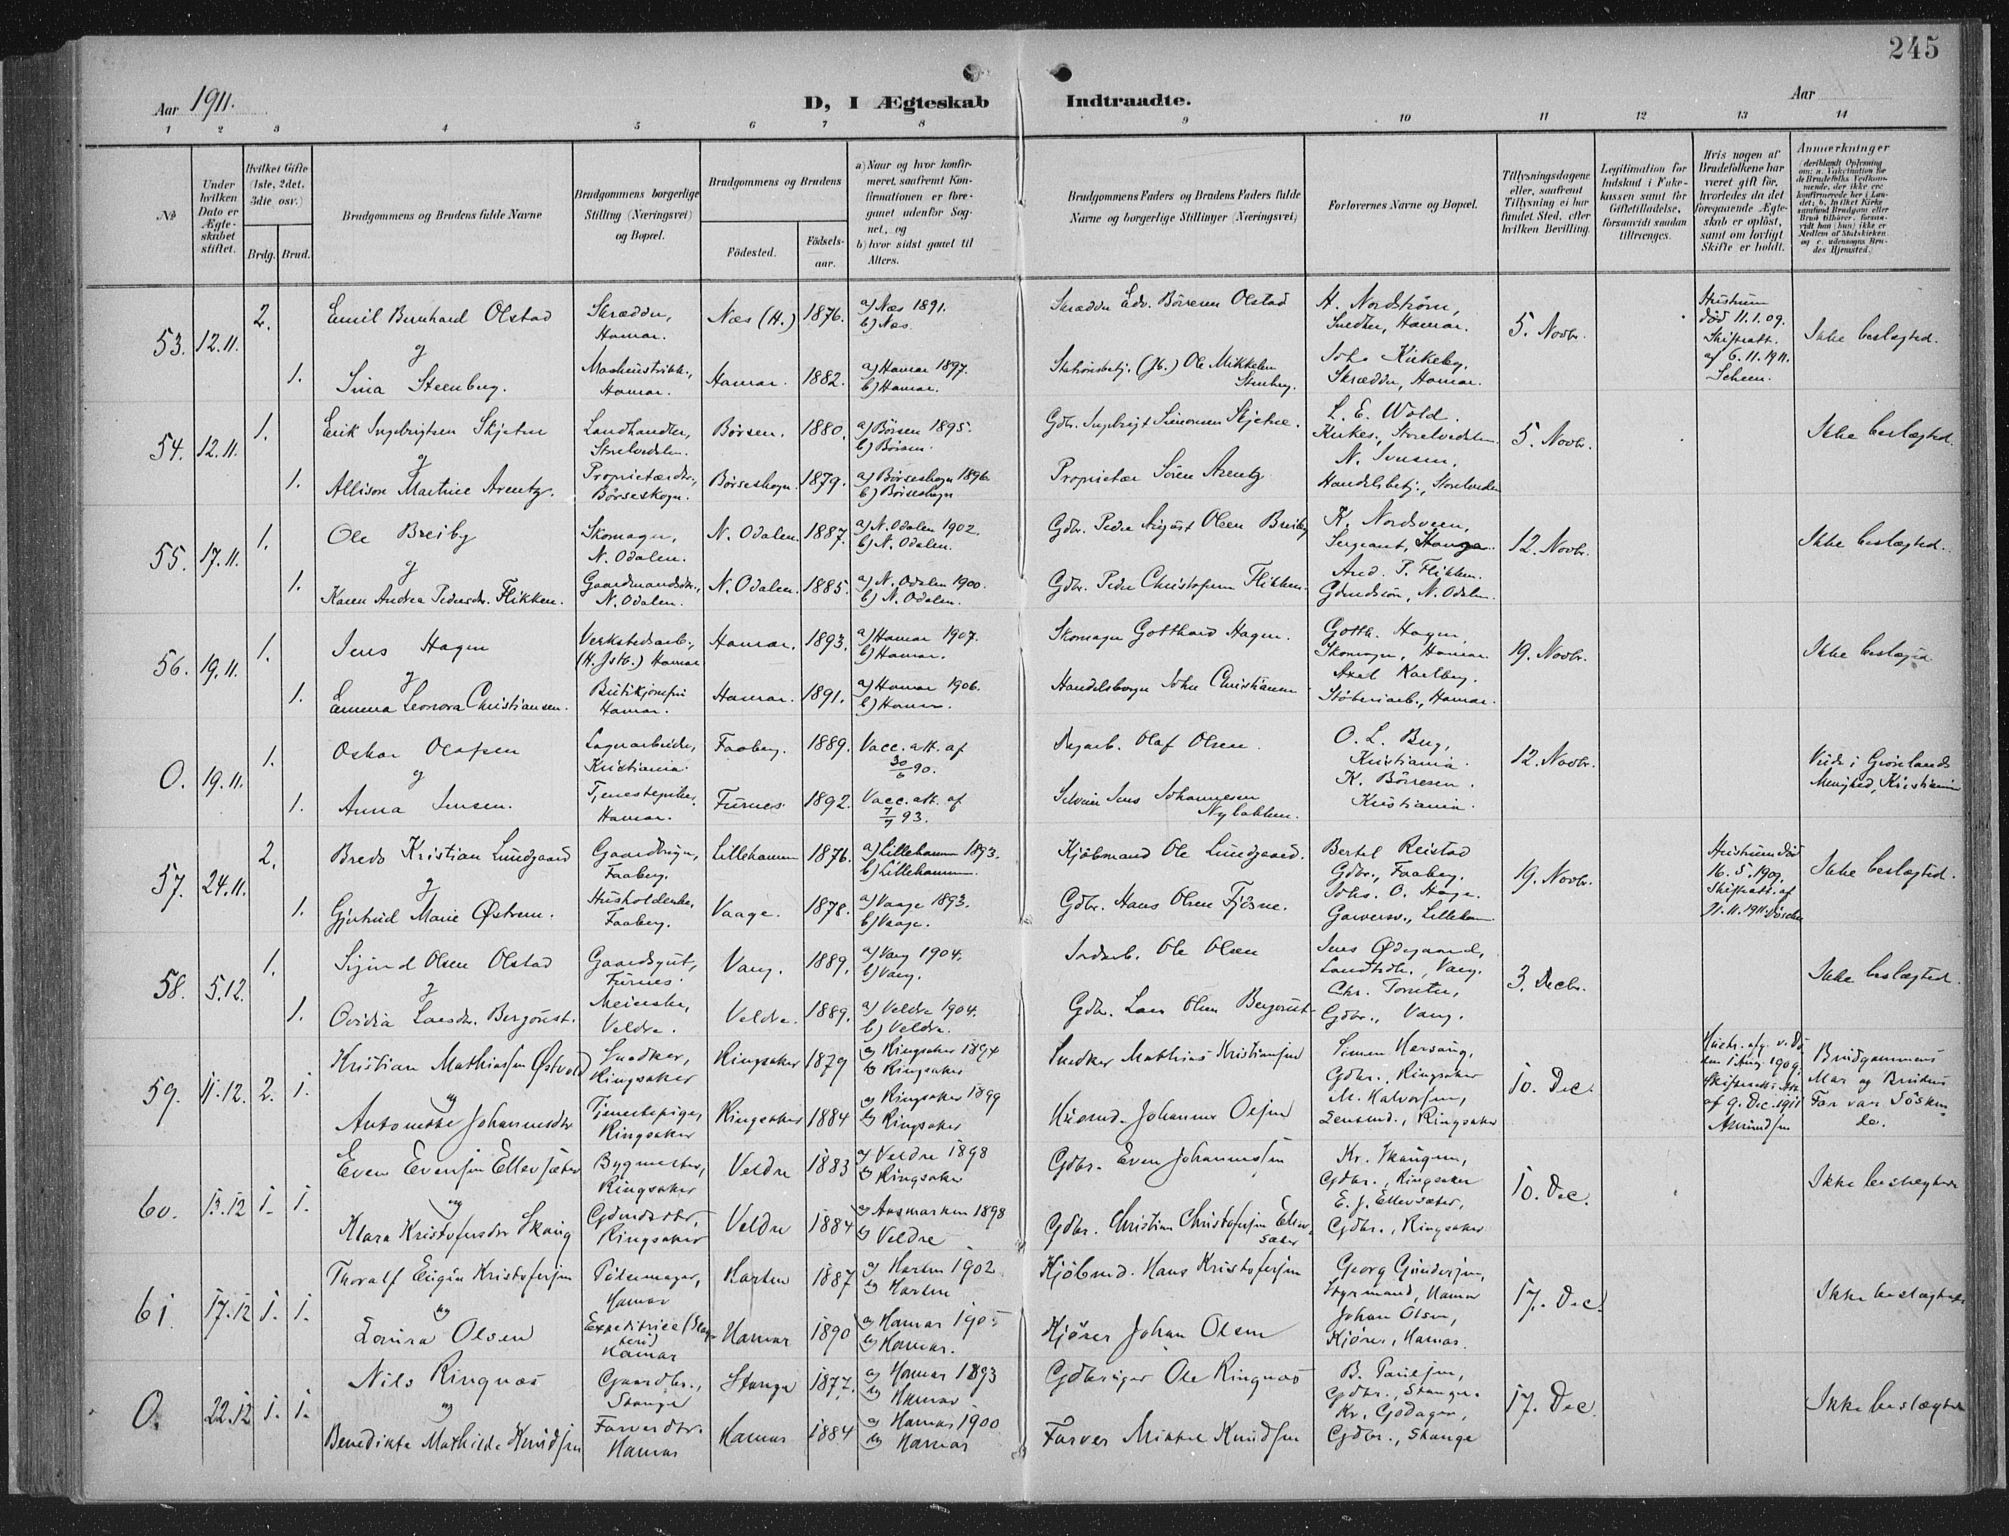 245
Aar 1911.
D, I Ægteskab Indtraadte.
Aar
1 2 3 4 5 6 7 8 9 10 11 12 13 14
No
Under hvilken Dato er Ægteskabet stiftet.
Hvilket Gifte (1ste, 2det, 3die osv.)
Brdg. Brud.
Brudgommens og Brudens fulde Navne
Brudgommens borgerlige Stilling (Næringsvei) og Bopæl.
Brudgommens og Brudens
Födested.
Födselsaar.
a) Naar og hvor konfirmeret, saafremt Konfirmationen er foregaaet udenfor Sognet, og
b) hvor sidst gaaet til Alters.
Brudgommens Faders og Brudens Faders fulde Navne og borgerlige Stillinger (Næringsvei)
Forlovernes Navne og Bopæl.
Tillysningsdagene eller, saafremt Tillysning ei har fundet Sted, efter hvilken Bevilling.
Legitimation for Indskud i Enkekassen samt for Giftetilladelse, forsaavidt saadan tiltrænges.
Hvis nogen af Brudefolkene har været gift før, hvorledes da det foregaaende Ægteskab er oplöst, samt om lovligt Skifte er holdt.
Anmerkninger
53. 12.11. 2. Emil Bernhard Olstad Skrædder, Hamar. Næs (H.) 1876. a) Næs 1891. b) Næs. Skrædder Edv. Börresen Olstad H. Nordström, Snedker, Hamar. 5. Novbr. Hustruen död 11.1.09. Skifteatt. af 6.11.1911. Scheen. Ikke beslægted.
og
1. Sina Steenberg. Hamar. Hamar. 1882. a) Hamar 1897. b) Hamar. Stationsbetj. Ole Mikkelsen Stenberg. Johs Kirkeby, Skrædder, Hamar.
54. 12.11. 1. Erik Ingebrigtsen Skjetne Landhandler, Storelvedalen. Börsen. 1880. a) Börsen 1895. b) Börsen. Gdbr. Ingebrigt Simonsen Skjetne. L. E. Wold. Kirkes., Storelvedalen 5. Novbr. Ikke beslægted.
og
1. Allison Martine Arentz. Proprietærdtr., Börseskogn. Börseskogn. 1879. a) Börseskogn 1896. b) Börseskogn Proprietær Sören Arentz N. Svensen, Handelsbetj., Storelvedalen
55. 17.11. 1. Ole Breiby Skomager, N. Odalen. N. Odalen. 1887. a) N. Odalen 1902. b) N. Odalen. Gdbr. Peder August Olsen Breiby K. Nordsveen, Sergeant, Stange. 12. Novbr. Ikke beslægted.
og
1. Karen Andrea Pedersdr. Flikken. Gaardmandsdtr., N. Odalen. N. Odalen. 1885. a) N. Odalen 1900. b) N. Odalen. Gdbr. Peder Christofersen Flikken. And. P. Flikken. Gdmdssön, N. Odalen.
56. 19.11. 1. Jens Hagen Verkstedsarb., (H. Jstb.) Hamar Hamar. 1893. a) Hamar 1907. b) Hamar. Skomager Gotthard Hagen. Gotth. Hagen, Skomager, Hamar 19. Novbr. Ikke beslægted
og
1. Emma Leonora Christiansen. Butikjomfru Hamar. Hamar. 1891. a) Hamar 1906. b) Hamar. Handelsborger John Christiansen Axel Karlberg, Stöberiarb., Hamar.
O. 19.11. 1. Oskar Olafsen Lagerarbeider, Kristiania. Faaberg. 1889. Vacc. att. af 30/6 90. Olaf Olsen. O. L. Berg, Kristiania. 12. Novbr. Viede i Grönlands Menighed, Kristiania
og
1. Anna Jensen. Tjenestepike, Hamar. Furnes. 1892. Vacc. att. af 7/7 93. Selveier Jens Johannesen Nybakken. K. Börresen. Kristiania.
57. 24.11. 2. Brede Kristian Lundgaard Gaardbruger, Faaberg. Lillehammer 1876. a) Lillehammer 1893. b) Lillehammer. Kjöbmand Ole Lundgaard. Bertel Reistad Gdbr., Faaberg. 19. Novbr. Hustruen död 16.5.1909. Skifteatt. af 21.11.1911. Ikke beslægted.
og
1. Gjertrud Marie Östrem. Husholderske, Faaberg. Vaage. 1878. a) Vaage 1893. b) Vaage. Gdbr. Hans Olsen Fjösne. Johs. O. Hage. Garversv., Lillehammer
58. 5.12. 1. Sigurd Olsen Olstad Gaardsgut, Furnes. Vang. 1889. a) Vang 1904. b) Vang. Jordarb. Ole Olsen Jens Ødegaard, Landhdlr., Vang. 3. Decbr. Ikke beslægted.
og
1. Ovidia Larsdr. Bergsrust. Meierske, Veldre. Veldre. 1889. a) Veldre 1904. b) Veldre. Gdbr. Lars Olsen Bergsrust. Chr. Torseter, Gdbr., Vang.
59. 11.12. 2. 1. Kristian Mathiassen Østvold Snedker, Ringsaker Ringsaker 1879 a) Ringsaker 1894 b) Ringsaker Snedker Mathias Kristiansen Gdbr., Ringsaker 10. Dec. Brudgommens Mor og Brudens Far var Söskende.
og
Antonette Johannesdtr Tjenestepige, Ringsaker Ringsaker 1884 a) Ringsaker 1899 b) Ringsaker Husmd. Johannes Olsen M. Halvorsen, Lensmd., Ringsaker
60. 13.12 1. 1. Even Evensen Ellevsæter Bygmester, Ringsaker Veldre 1883 a) Veldre 1898 b) Ringsaker Gdbr. Even Johannessen Kr. Skaugen, Gdbr., Ringsaker 10. Dec. Ikke beslægtede
og
Klara Kristofersdtr Skaug Gdmdsdtr, Ringsaker Veldre 1884 a) Aasmarken 1898 b) Veldre Gdbr. Christian Christofersen Ellevsæter E. J. Ellevsæter, Gdbr., Ringsaker
61. 17.12 1. 1. Thoralf Eugén Kristofersen Pölsemager, Hamar Horten 1887 a) Horten 1902 b) Horten Kjöbmd. Hans Kristofersen Georg Gundersen, Styrmand, Hamar 17. Dec. Ikke beslægtede
og
Louisa Olsen Expeditrice Hamar Hamar 1890 a) Hamar 1905 b) Hamar. Kjörer Johan Olsen Johan Olsen, Kjörer, Hamar.
O. 22.12 1. 1. Nils Ringnæs Gaardbr., Stange Stange 1877. a) Hamar 1893 b) Hamar Gdbruger Ole Ringnæs B. Paulsen, Gdbr., Stange. 17. Dec. Ikke beslægtede
og
Benedikte Mathilde Knudsen Farverdtr. Hamar Hamar 1884 a) Hamar 1900 b) Hamar Farver Mikkel Knudsen Kr. Gjödager, Gdbr., Stange